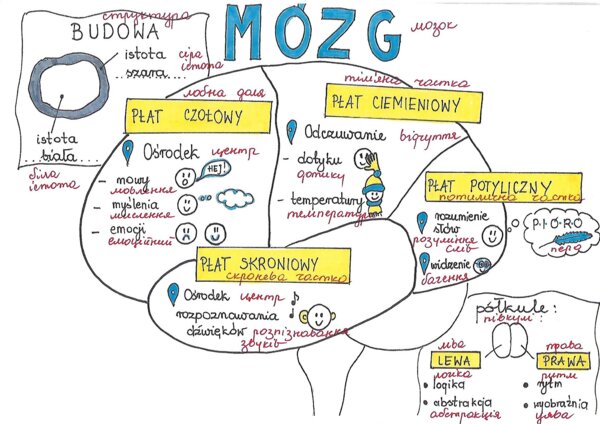 MÓZG
мозок
структура
BUDOWA
istota сіра
szara істота
istota
biała
біла
істота
лобна доля
PŁAT CZOŁOWY
Ośrodek центр
- mowy HEJ!
мовлення
- myślenia
мислення
- emocji
емоційний
тім'яна частка
PŁAT CIEMIENIOWY
Odczuwanie відчуття
- dotyku
дотику
- temperatury
температури
PŁAT POTYLICZNY
потилична частка
rozumienie
słów
розуміння
слів
P-I-Ó-R-O
перо
widzenie
бачення
PŁAT SKRONIOWY
скронева частка
Ośrodek центр
rozpoznawania
dźwięków розпізнавання
звуків
półkule:
півкулі:
ліва
LEWA
логіка
• logika
• abstrakcja
абстракція
права
PRAWA
ритм
• rytm
• wyobraźnia
уява